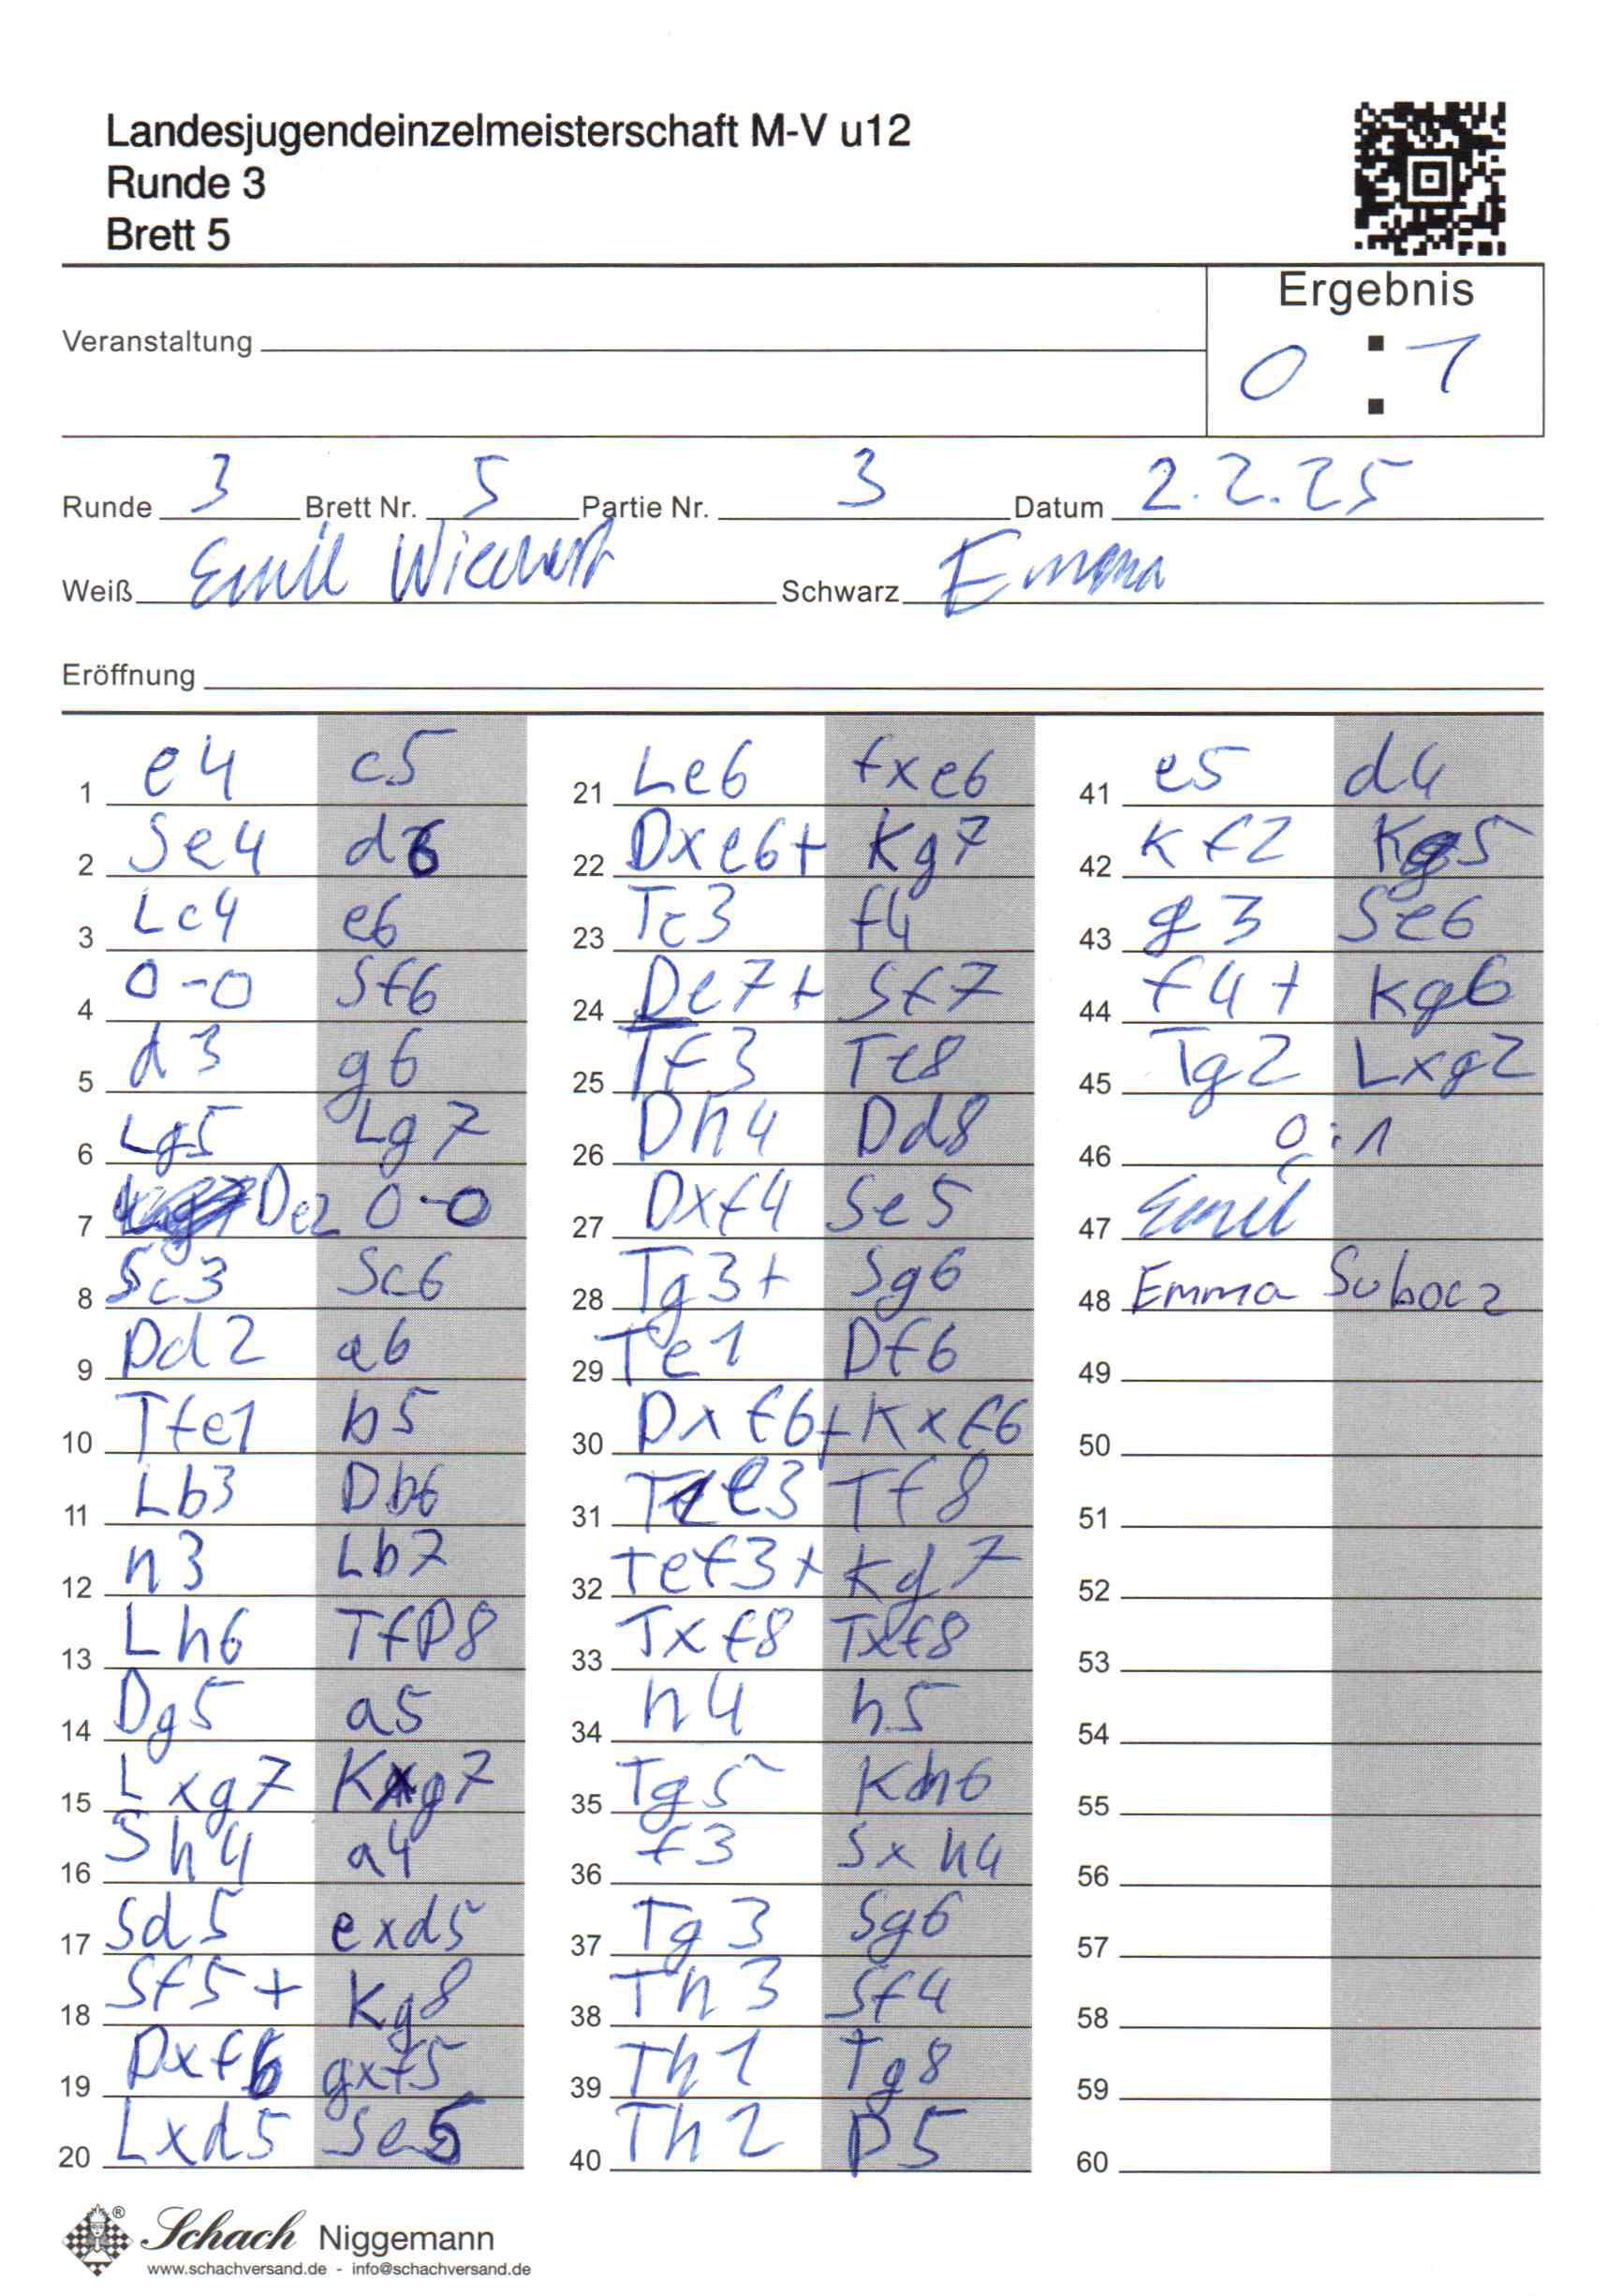 Landesjugendeinzelmeisterschaft M-V u12
Runde 3
Brett 5
Ergebnis
Veranstaltung
0 : 1
Runde 3 Brett Nr. 5 Partie Nr. 3 Datum 2.2.25
Weiß Emil Schwarz Emma
Eröffnung
1 e4 c5
2 Se4 d6
3 Lc4 e6
4 0-0 Sf6
5 d3 g6
6 Lg5 Lg7
7 De2 0-0
8 Sc3 Sc6
9 Dd2 a6
10 Tfe1 b5
11 Lb3 Db6
12 h3 Lb7
13 Lh6 TfD8
14 Dg5 a5
15 Lxg7 Kxg7
16 Sh4 a4
17 Sd5 exd5
18 Sf5+ Kg8
19 Dxf6 gxf5
20 Lxd5 Se5
21 Le6 fxe6
22 Dxe6+ Kg7
23 Tc3 f4
24 De7+ Sf7
25 Tf3 Te8
26 Dh4 Dd8
27 Dxf4 Se5
28 Tg3+ Sg6
29 Te1 Df6
30 Dxf6+ Kxf6
31 Te3 Tf8
32 Tef3+ Kg7
33 Txf8 Txf8
34 h4 h5
35 Tg5 Kh6
36 f3 Sxh4
37 Tg3 Sg6
38 Th3 Sf4
39 Th1 Tg8
40 Th2 D5
41 e5 d4
42 Kf2 Kg5
43 g3 Se6
44 f4+ Kg6
45 Tg2 Lxg2
46 0:1
47 Emil
48 Emma Subocz
49
50
51
52
53
54
55
56
57
58
59
60
Schach Niggemann
www.schachversand.de - info@schachversand.de